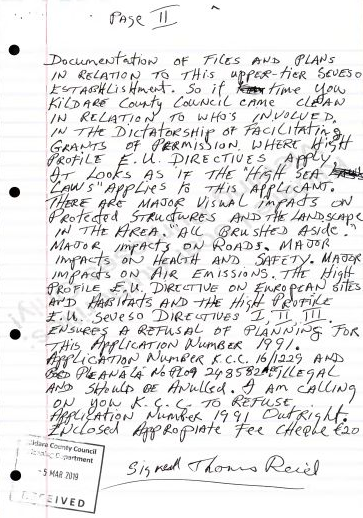 PAGE II
DOCUMENTATION OF FILES AND PLANS
IN RELATION TO THIS UPPER-TIER SEVESO
ESTABLISHMENT. SO IF TIME YOU
KILDARE COUNTY COUNCIL CAME CLEAN
IN RELATION TO WHO'S INVOLVED.
IN THE DICTATORSHIP OF FACILITATING
GRANTS OF PERMISSION. WHERE HIGH
PROFILE E.U. DIRECTIVES APPLY.
IT LOOKS AS IF THE "HIGH SEA
LAWS" APPLIES TO THIS APPLICANT.
THERE ARE MAJOR VISUAL IMPACTS ON
PROTECTED STRUCTURES AND THE LANDSCAPE
IN THE AREA. "ALL BRUSHED ASIDE."
MAJOR IMPACTS ON ROADS. MAJOR
IMPACTS ON HEALTH AND SAFETY. MAJOR
IMPACTS ON AIR EMISSIONS. THE HIGH
PROFILE E.U. DIRECTIVE ON EUROPEAN SITES
AND HABITATS AND THE HIGH PROFILE
E.U. SEVESO DIRECTIVES I II III
ENSURES A REFUSAL OF PLANNING FOR
THIS APPLICATION NUMBER 1991.
APPLICATION NUMBER K.C.C. 16/1229 AND
BORD PLEANALA No PL09 248582 ILLEGAL
AND SHOULD BE ANULLED. I AM CALLING
ON YOU K.C.C. TO REFUSE
APPLICATION NUMBER 1991 OUTRIGHT.
ENCLOSED APPROPIATE FEE CHEQUE €20
Kildare County Council
Planning Department
-5 MAR 2019
RECEIVED
Signed Thomas Reid